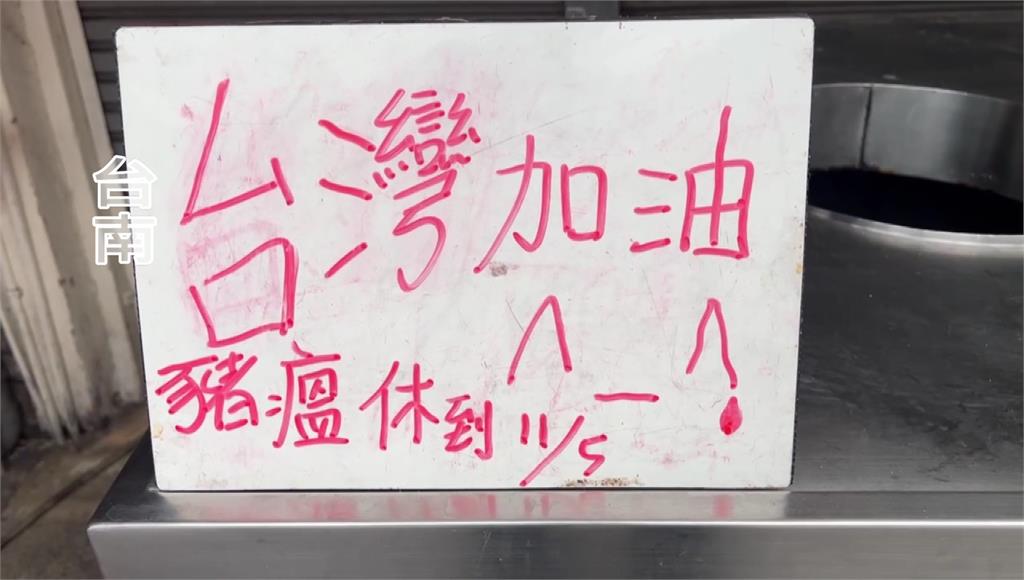 台南
台灣加油
豬瘟休到11/5